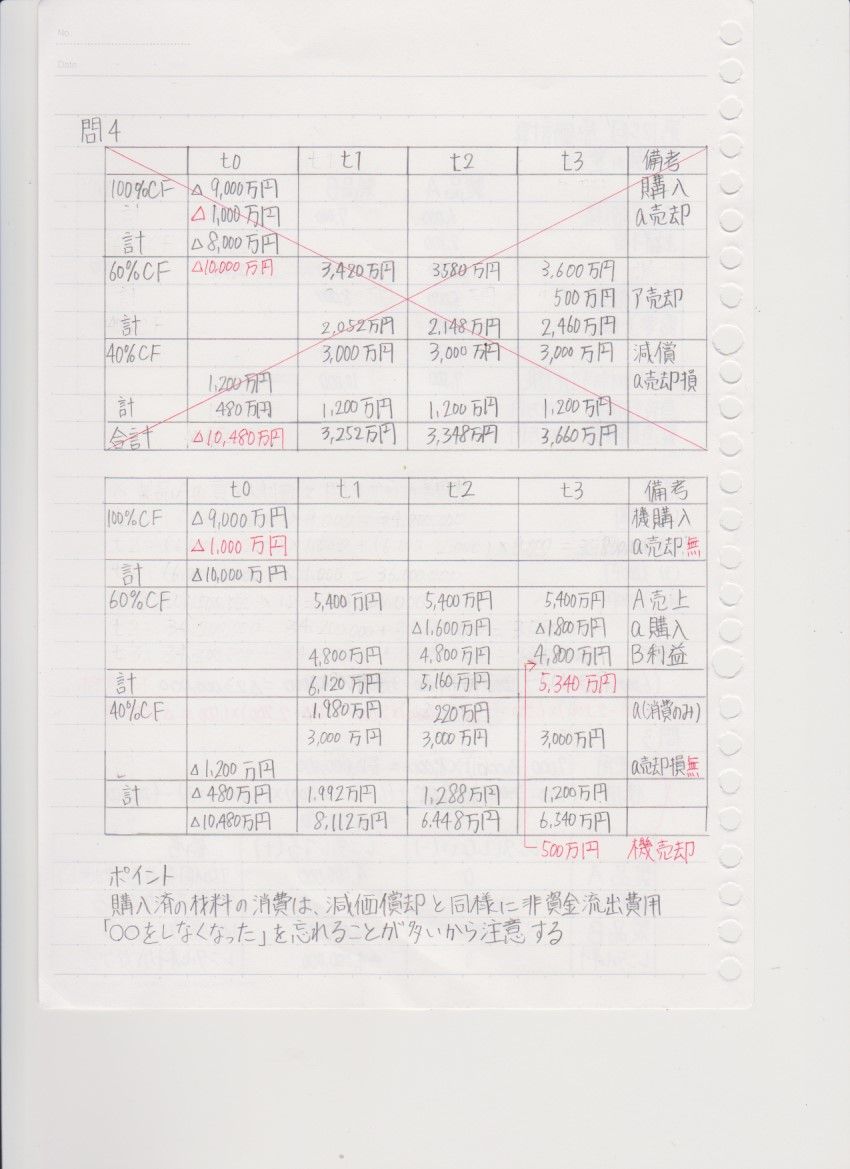 No.
Date
問4
t0 t1 t2 t3 備考
100%CF △9,000万円 購入
△1,000万円 a売却
計 △8,000万円
60%CF △10,000万円 3,420万円 3580万円 3,600万円
500万円 ア売却
計 2,052万円 2,148万円 2,460万円
40%CF 3,000万円 3,000万円 3,000万円 減償
1,200万円 a売却損
計 480万円 1,200万円 1,200万円 1,200万円
合計 △10,480万円 3,252万円 3,348万円 3,660万円
t0 t1 t2 t3 備考
100%CF △9,000万円 機購入
△1,000万円 a売却無
計 △10,000万円
60%CF 5,400万円 5,400万円 5,400万円 A売上
△1,600万円 △1,800万円 a購入
4,800万円 4,800万円 4,800万円 B利益
計 6,120万円 5,160万円 5,340万円
40%CF 1,980万円 220万円 a(消費のみ)
3,000万円 3,000万円 3,000万円
△1,200万円 a売却損無
計 △480万円 1,992万円 1,288万円 1,200万円
△10,480万円 8,112万円 6.448万円 6,540万円
500万円 機売却
ポイント
購入済の材料の消費は、減価償却と同様に非資金流出費用
「○○をしなくなった」を忘れることが多いから注意する